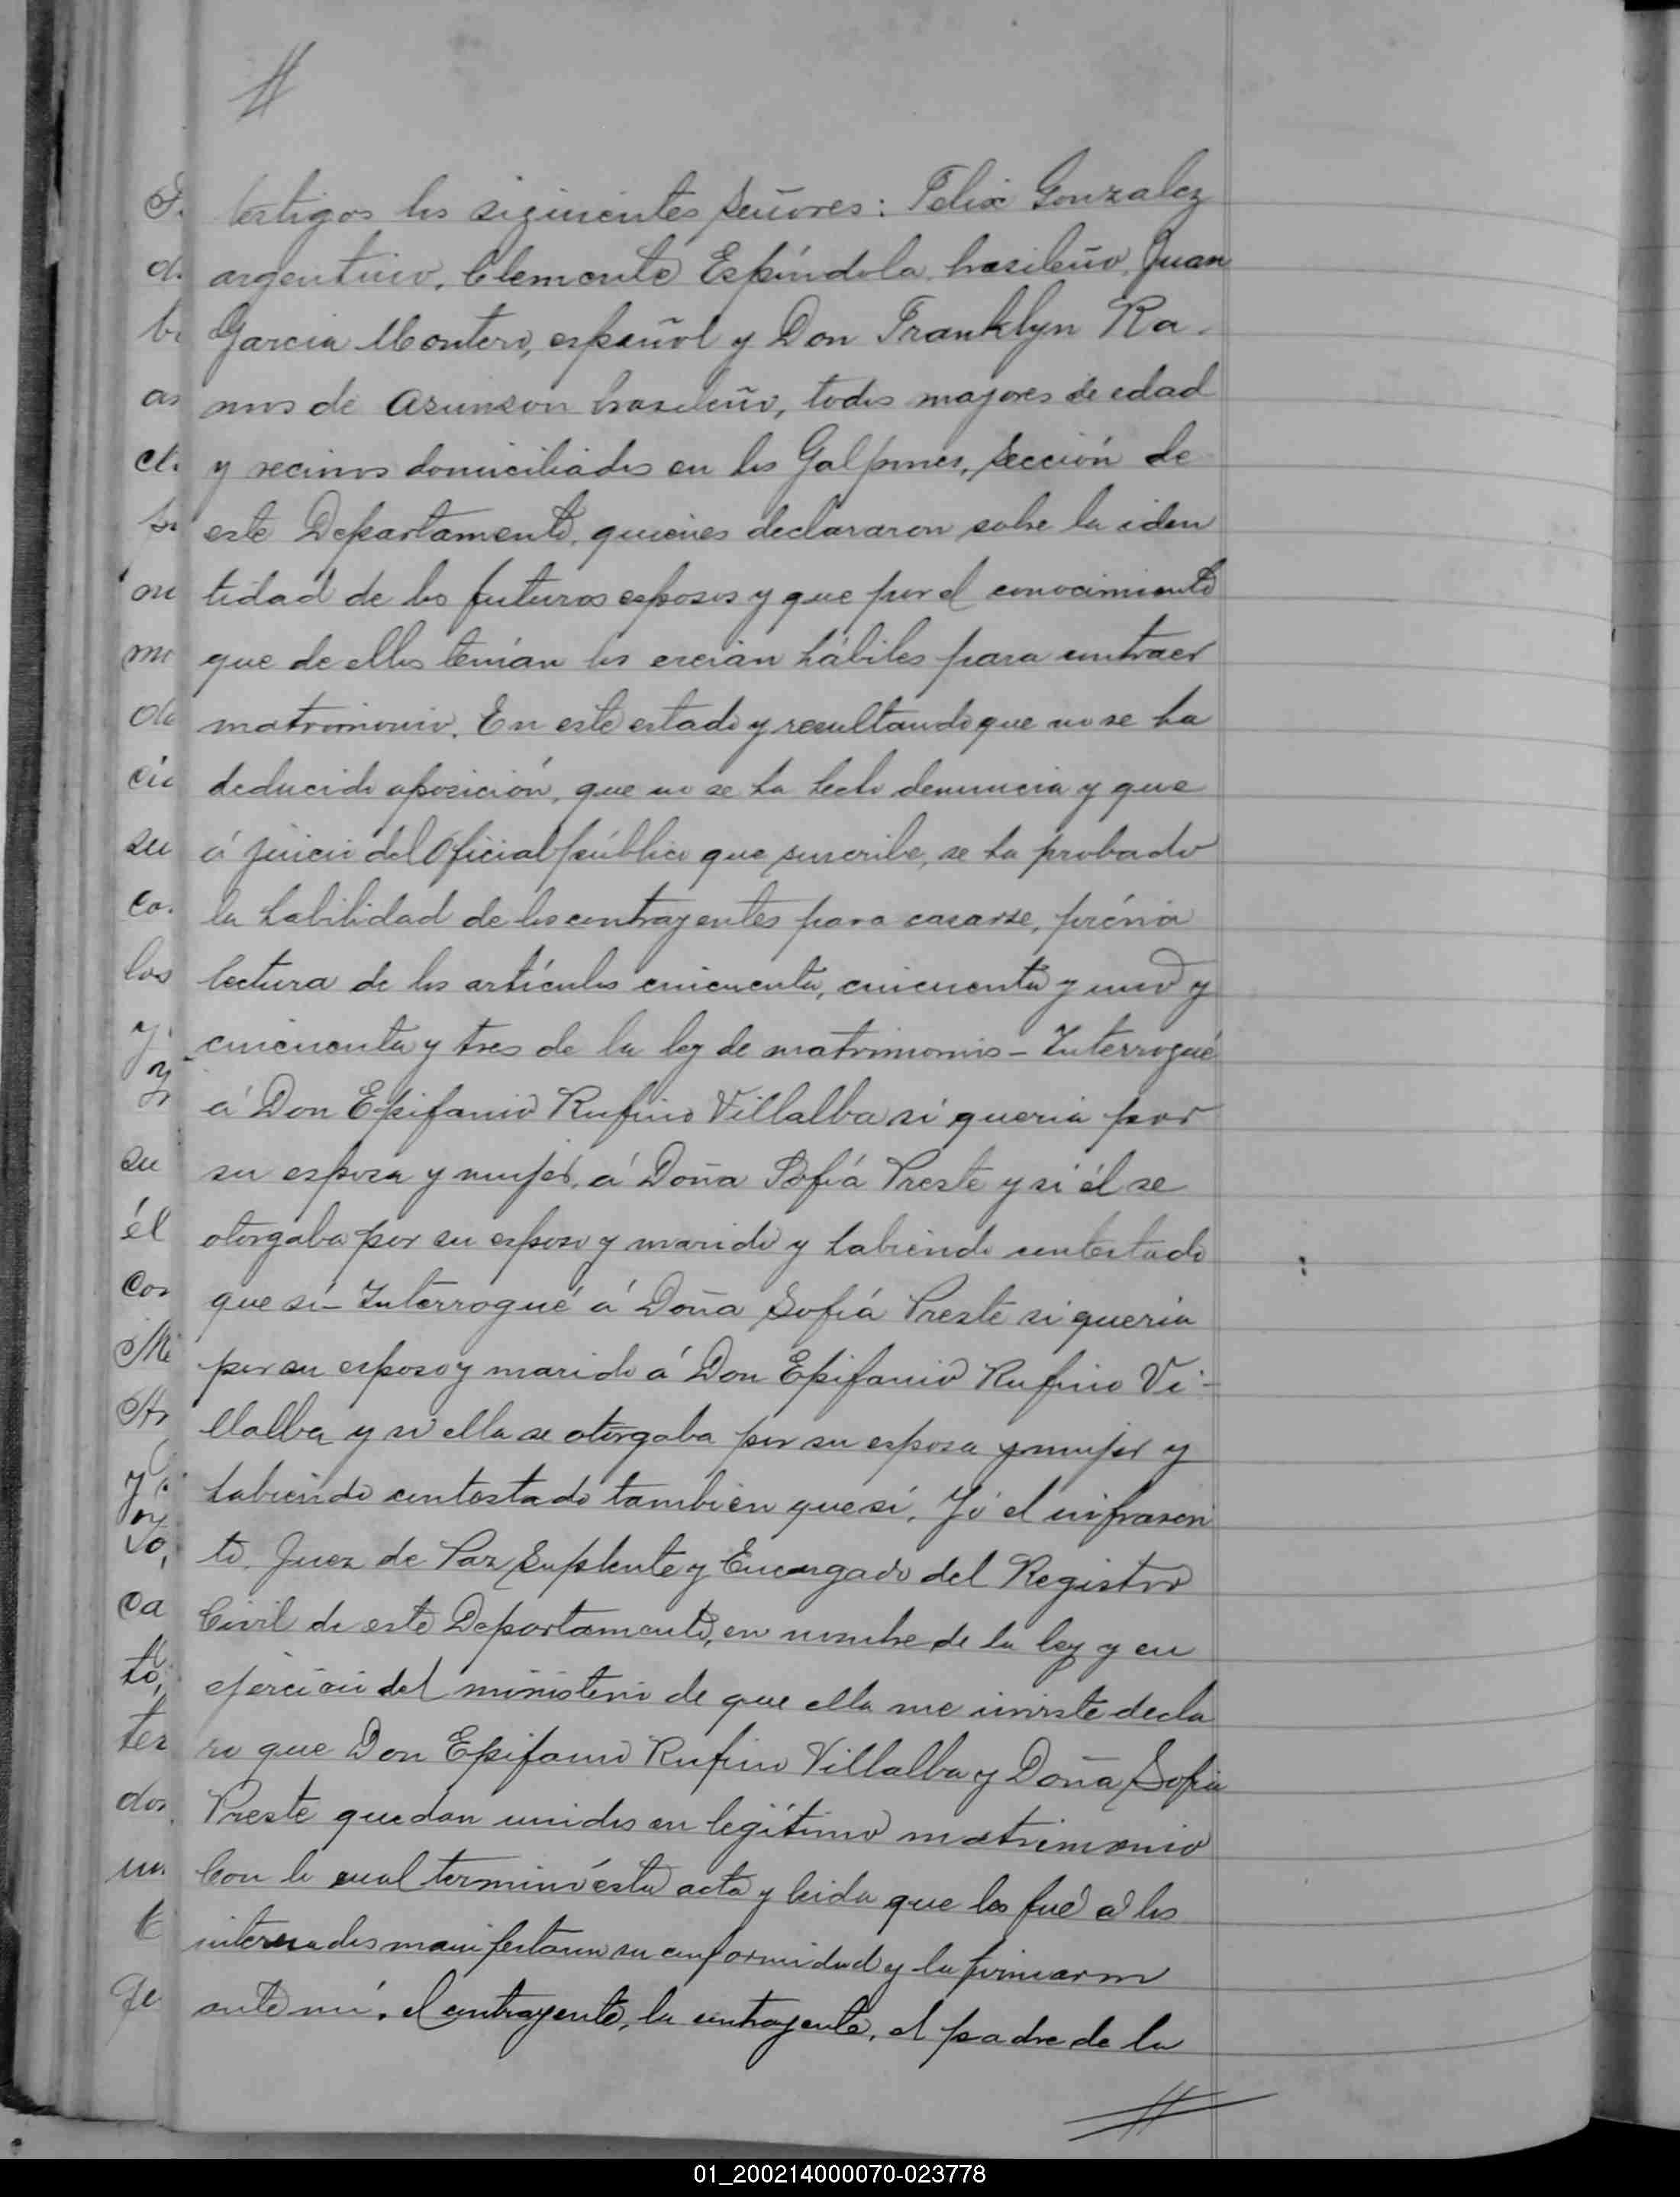 //
testigos los siguientes señores: Felix Gonzalez
argentino, Clemente Espíndola, brasileño, Juan
Garcia Montero, español y Don Franklyn Ra-
mos de Asunson brasileño, todos mayores de edad
y vecinos domiciliados en los Galpones, sección de
este Departamento, quienes declararon sobre la iden
tidad de los futuros esposos y que por el conocimiento
que de ellos tenían los creian hábiles para contraer
matrimonio. En este estado y resultando que no se ha
deducido oposición, que no se ha hecho denuncia y que
á juicio del Oficial público que suscribe, se ha probado
la habilidad de los contrayentes para casarse, prévia
lectura de los artículos cincuenta, cincuenta y uno y
cincuenta y tres de la ley de matrimonio - Interrogué
á Don Epifanio Rufino Villalba si queria por
su esposa y mujer, á Doña Sofía Preste y si él se
otorgaba por su esposo y marido y habiendo contestado
que sí - Interrogué á Doña Sofiá Preste si queria
por su esposo y marido á Don Epifanio Rufino Vi-
llalba y si ella se otorgaba por su esposa y mujer y
habiendo contestado tambien que sí. Yo el infrascri
to, Juez de Paz Suplente y Encargado del Registro
Civil de este Departamento, en nombre de la ley y en
ejercicio del ministerio de que ella me inviste decla
ro que Don Epifanio Rufino Villalba y Doña Sofia
Preste quedan unidos en legítimo matrimonio
Con lo cual terminó esta acta y leida que les fué á los
interesados manifestaron su conformidad y la firmaron
ante mí, el contrayente, la contrayente, el padre de la
//
01_200214000070-023778